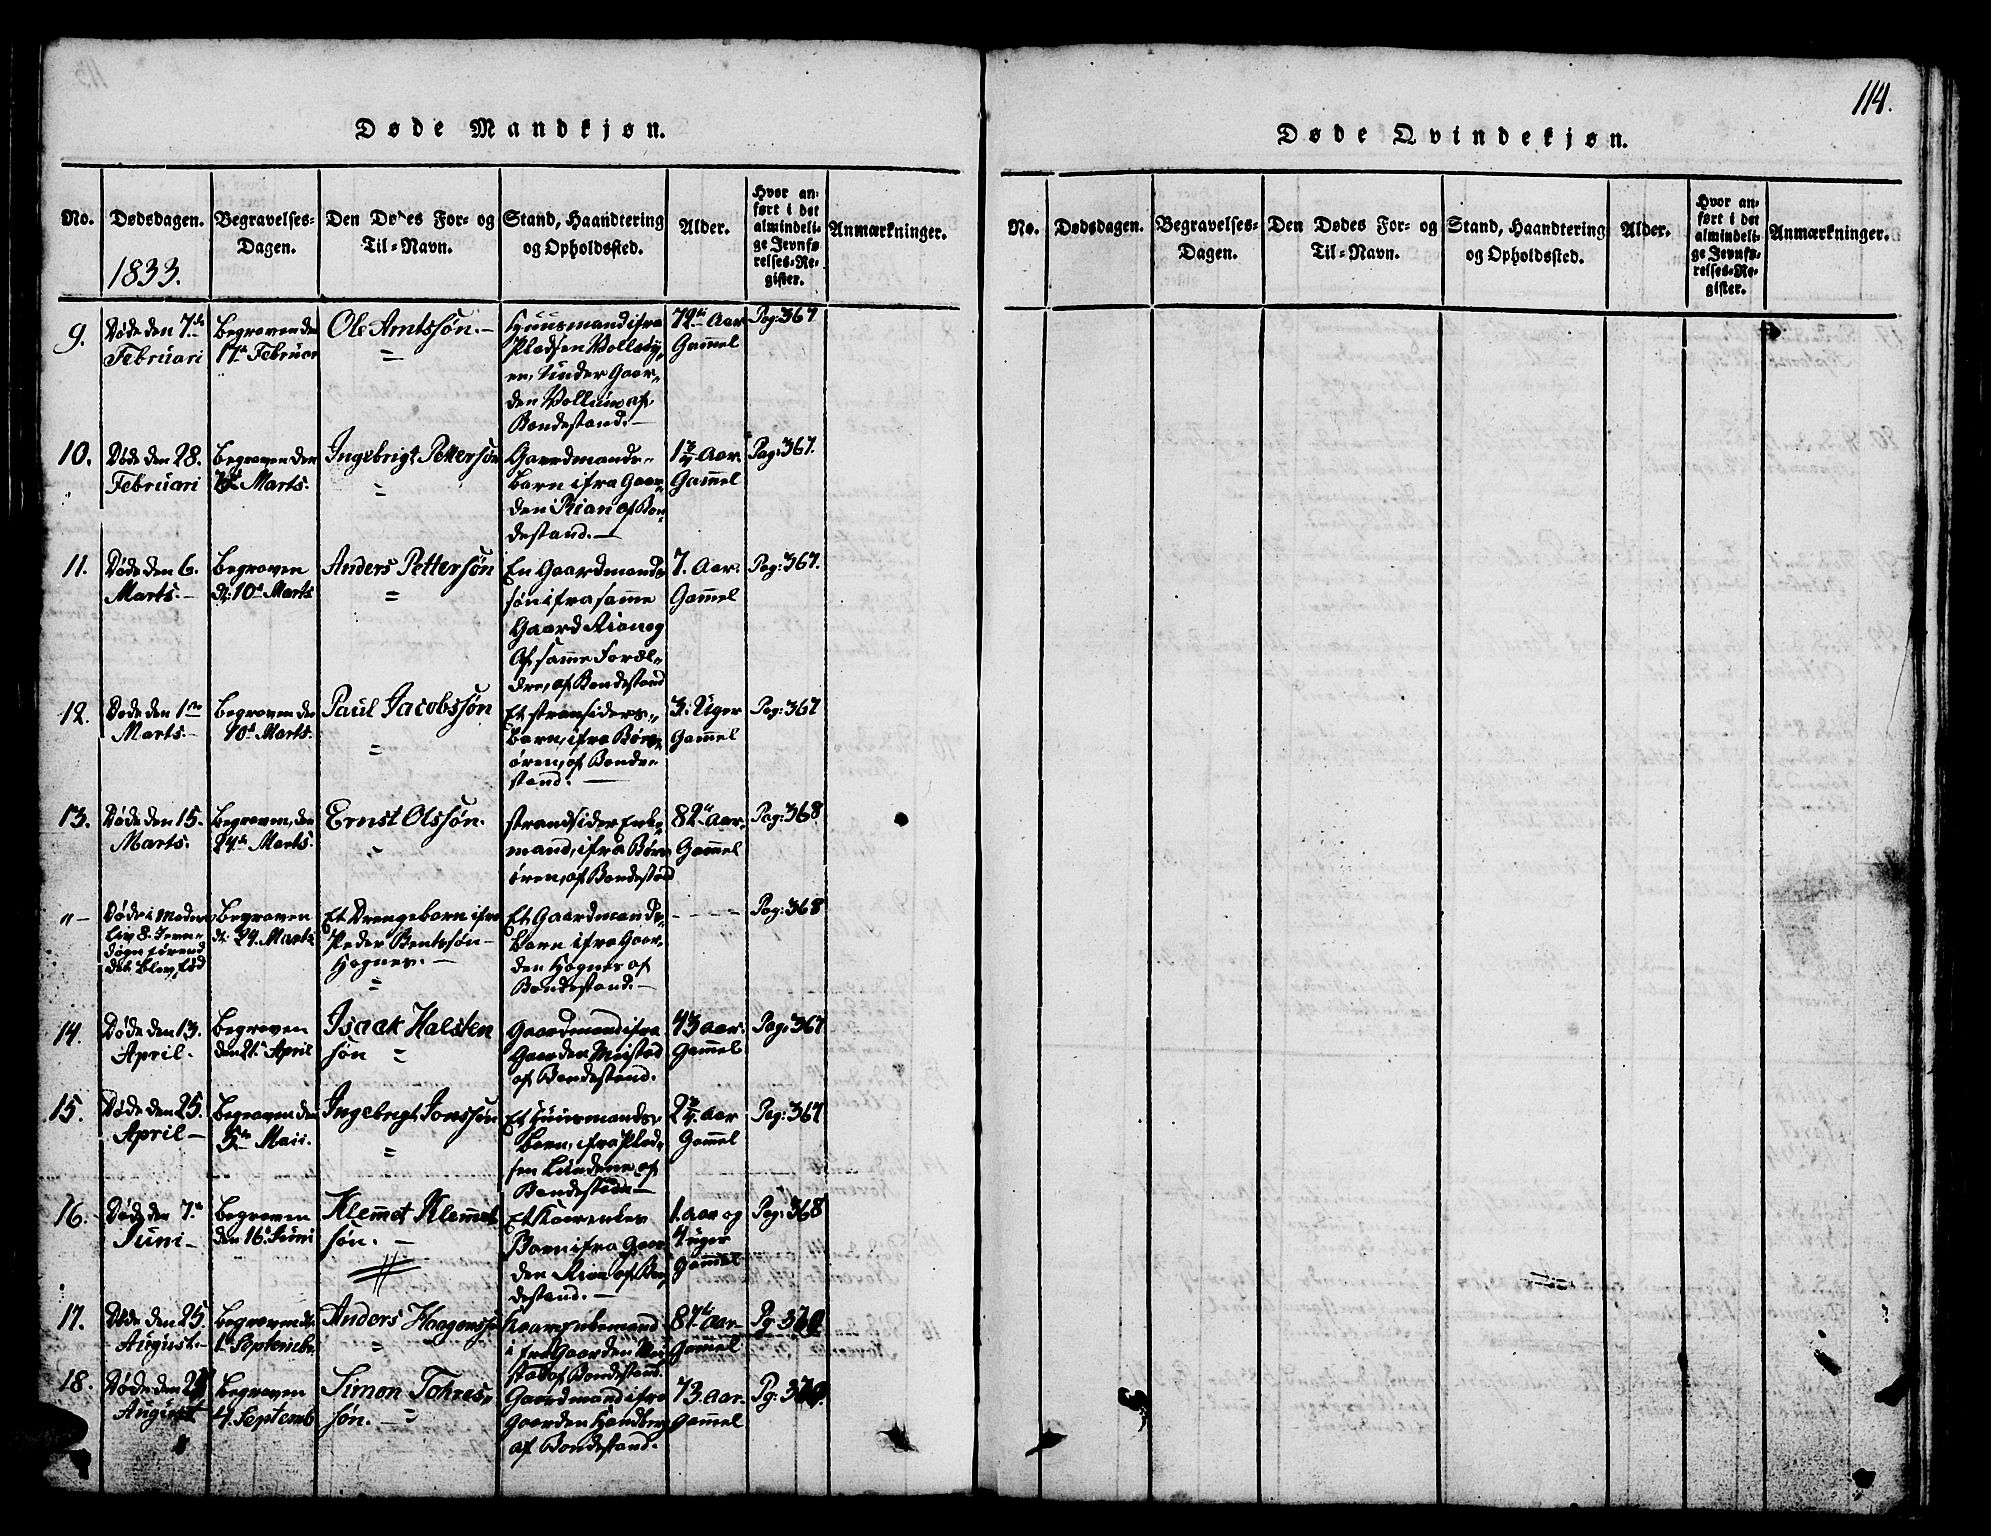 114.
Døde Mandkjøn.
No.
Dødsdagen.
Begravelses-
Dagen.
Den Dødes For- og
Til-Navn.
Stand, Haandtering
og Opholdssted.
Alder.
Hvor an-
ført i det
almindeli-
ge Jevnfø-
relses-Re-
gister.
Anmærkninger.
1833.
9.
Døde den 7de
Februari
Begraven den
17de Februar
Ole Arntssøn.
Huusmand ifra
Pladsen
under Gaar-
den af
Bondestand.
72 Aar
Gammel
Pag: 367
10.
Døde den 28.
Februari
Begraven den
Marts.
Ingebrigt Pettersøn
Gaardmands-
Barn ifra Gaar-
den Rian af Bon-
destand.
1 3/4 Aar
Gammel
Pag: 367.
11.
Døde den 6.
Marts.
Begraven
d: 10de Marts
Anders Pettersøn
En Gaardmands
søn ifra samme
Gaard Rian og
Af samme Foræl-
dre, af Bondestand
7. Aar.
Gammel
Pag: 367.
12.
Døde den 1ste
Marts.
Begraven den
10de Marts.
Paul Jacobssøn
Et stransiders-
Barn, ifra Børs-
øren, af Bonde-
stand.
3. Uger
Gammel
Pag: 367
13.
Døde den 15.
Marts.
Begraven, den
24de Marts.
Ernst Olssøn.
strandsider Enke-
mand, ifra Børs-
øren, af Bondestad
82 Aar.
Gammel
Pag: 368
"
Døde i Moders
Liv 8.
Døgn førend
det blev fød
Begraven
d: 24. Marts
Et Drengebarn ifra
Peder Bentssøn
Hognes.
Et Gaardmands
Barn ifra Gaar-
den Hognes af
Bondestand.
Pag: 368
14.
Døde den 13.
April.
Begraven
den 21de April
Isaak Halsten
søn
Gaardmand ifra
Gaarden Meistad
af Bondestand.
43 Aar.
Gammel
Pag: 367
15.
Døde den 25.
April
Begraven den
5te Maii.
Ingebrigt Jonssøn
Et Huusmands-
Barn, ifra Plad-
sen Lundene af
Bondestand
2 3/4 Aar
Gammel
Pag: 367
16.
Døde den 7de
Juni
Begraven
den 16. Juni
Klemmet Klemmet
søn.
Et
Barn ifra Gaar-
den Rian af Bon-
destand.
1. Aar og
4 uger
Gammel
Pag: 368
17.
Døde den 25.
August.
Begraven d:
1ste Septembr.
Anders Haagenssøn
ifra Gaarden Mei-
stad af Bondestand.
87 Aar
Gammel
Pg:
18.
Døde den
August
Begraven
4. Septemb
Simon Tohres-
søn.
Gaardmand ifra
Gaarden Handberg
af Bondestand.
73. Aar.
Gammel
Pg:
Døde Qvindekjøn.
No.
Dødsdagen.
Begravelses-
Dagen.
Den Dødes For- og
Til-Navn.
Stand, Haandtering
og Opholdssted.
Alder.
Hvor an-
ført i det
almindeli-
ge Jevnfø-
relses-Re-
gister.
Anmærkninger.